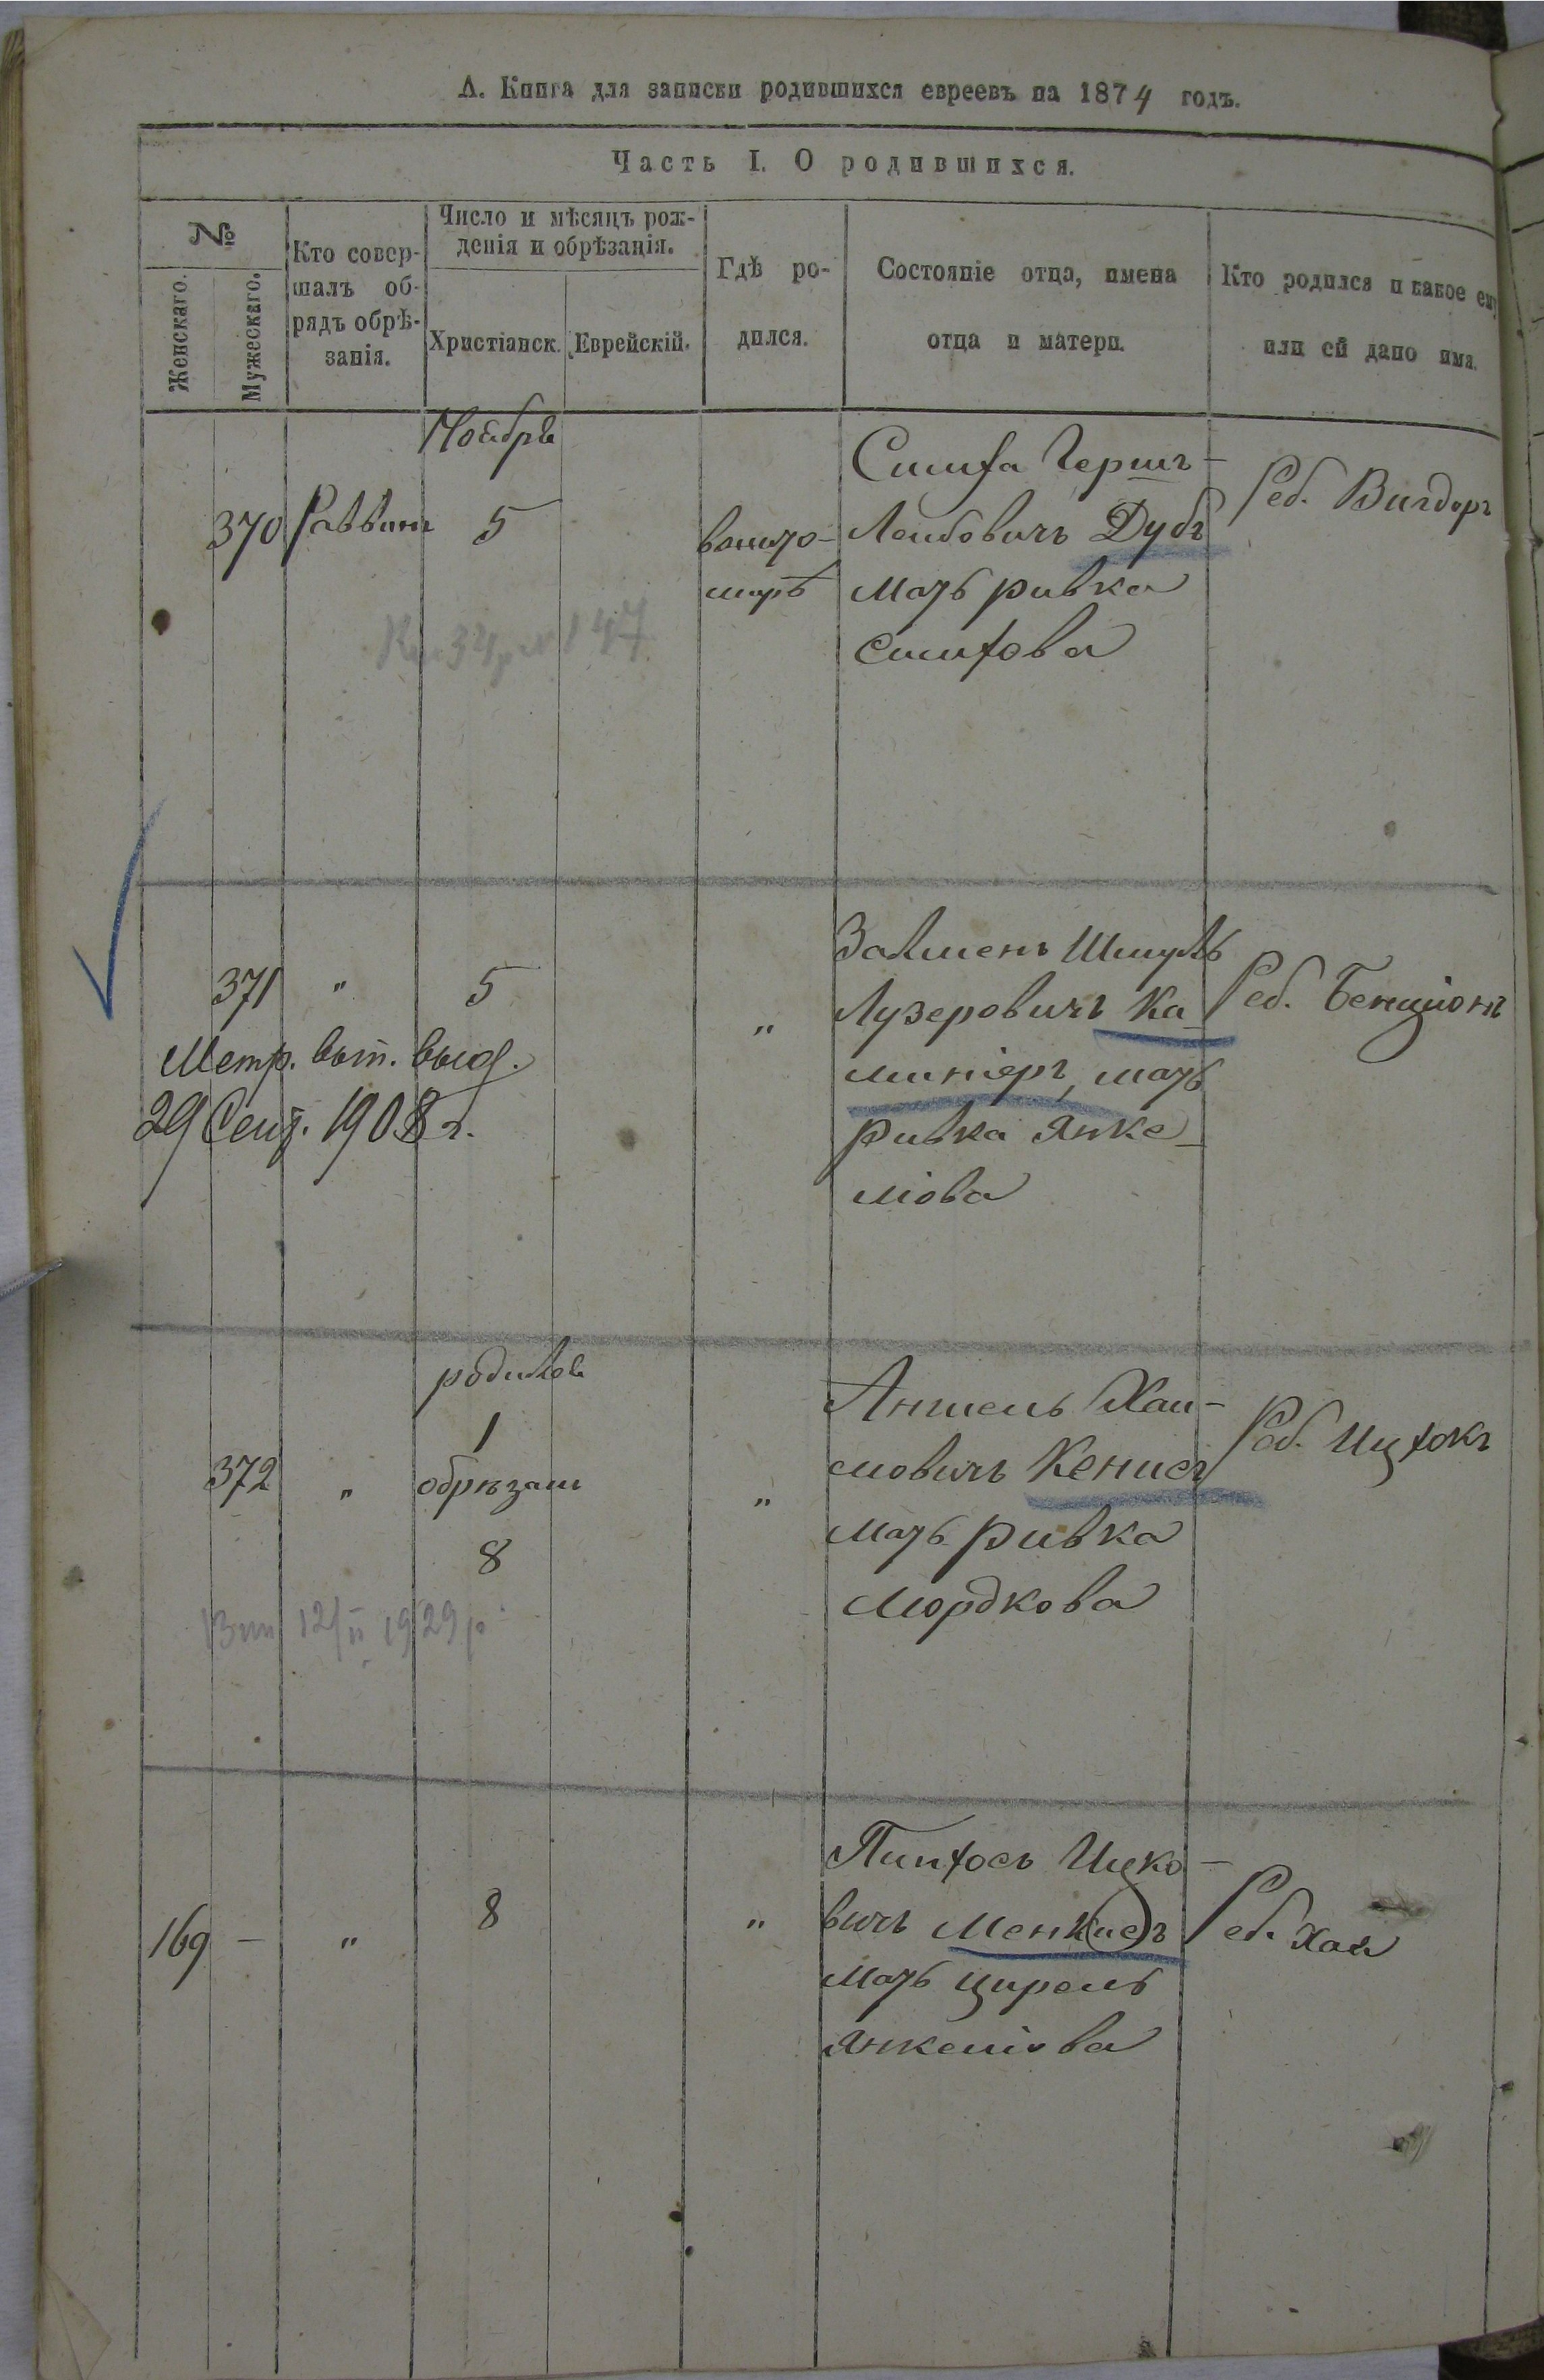 А. Книга для записки родившихся евреевъ на 1874 годъ.
Часть I. О родившихся.
№
Женскаго.
Мужескаго.
Кто совер-
шалъ об-
рядъ обрѣ-
занія.
Число и мѣсяцъ рож-
денія и обрѣзанія.
Христіанск.
Еврейскій.
Гдѣ ро-
дился.
Состояніе отца, имена
отца и матери.
Кто родился и какое ему
или ей дано имя.
Ноября
370
Раввинъ
5
Симха Гершъ-
Лейбовичъ Дубъ
мать ривка
симхова
Реб. Вигдоръ
371
"
5
"
Залменъ Шмуль
Лузеровичъ Ка-
миніеръ, мать
ривка янке-
ліова
Реб. Бенціонъ
Метр. вып. выд.
29 Сент. 1908 г.
родился
1
обрѣзанъ
8
372
"
"
Аншель Хаи-
мовичъ Кенисъ
мать ривка
мордкова
Реб. Ицхокъ
12/II 1929 р.
169
—
"
8
"
Пинхосъ Ицко-
вичъ Менк(ис)ъ
мать цирель
янкеліова
Реб. Хая